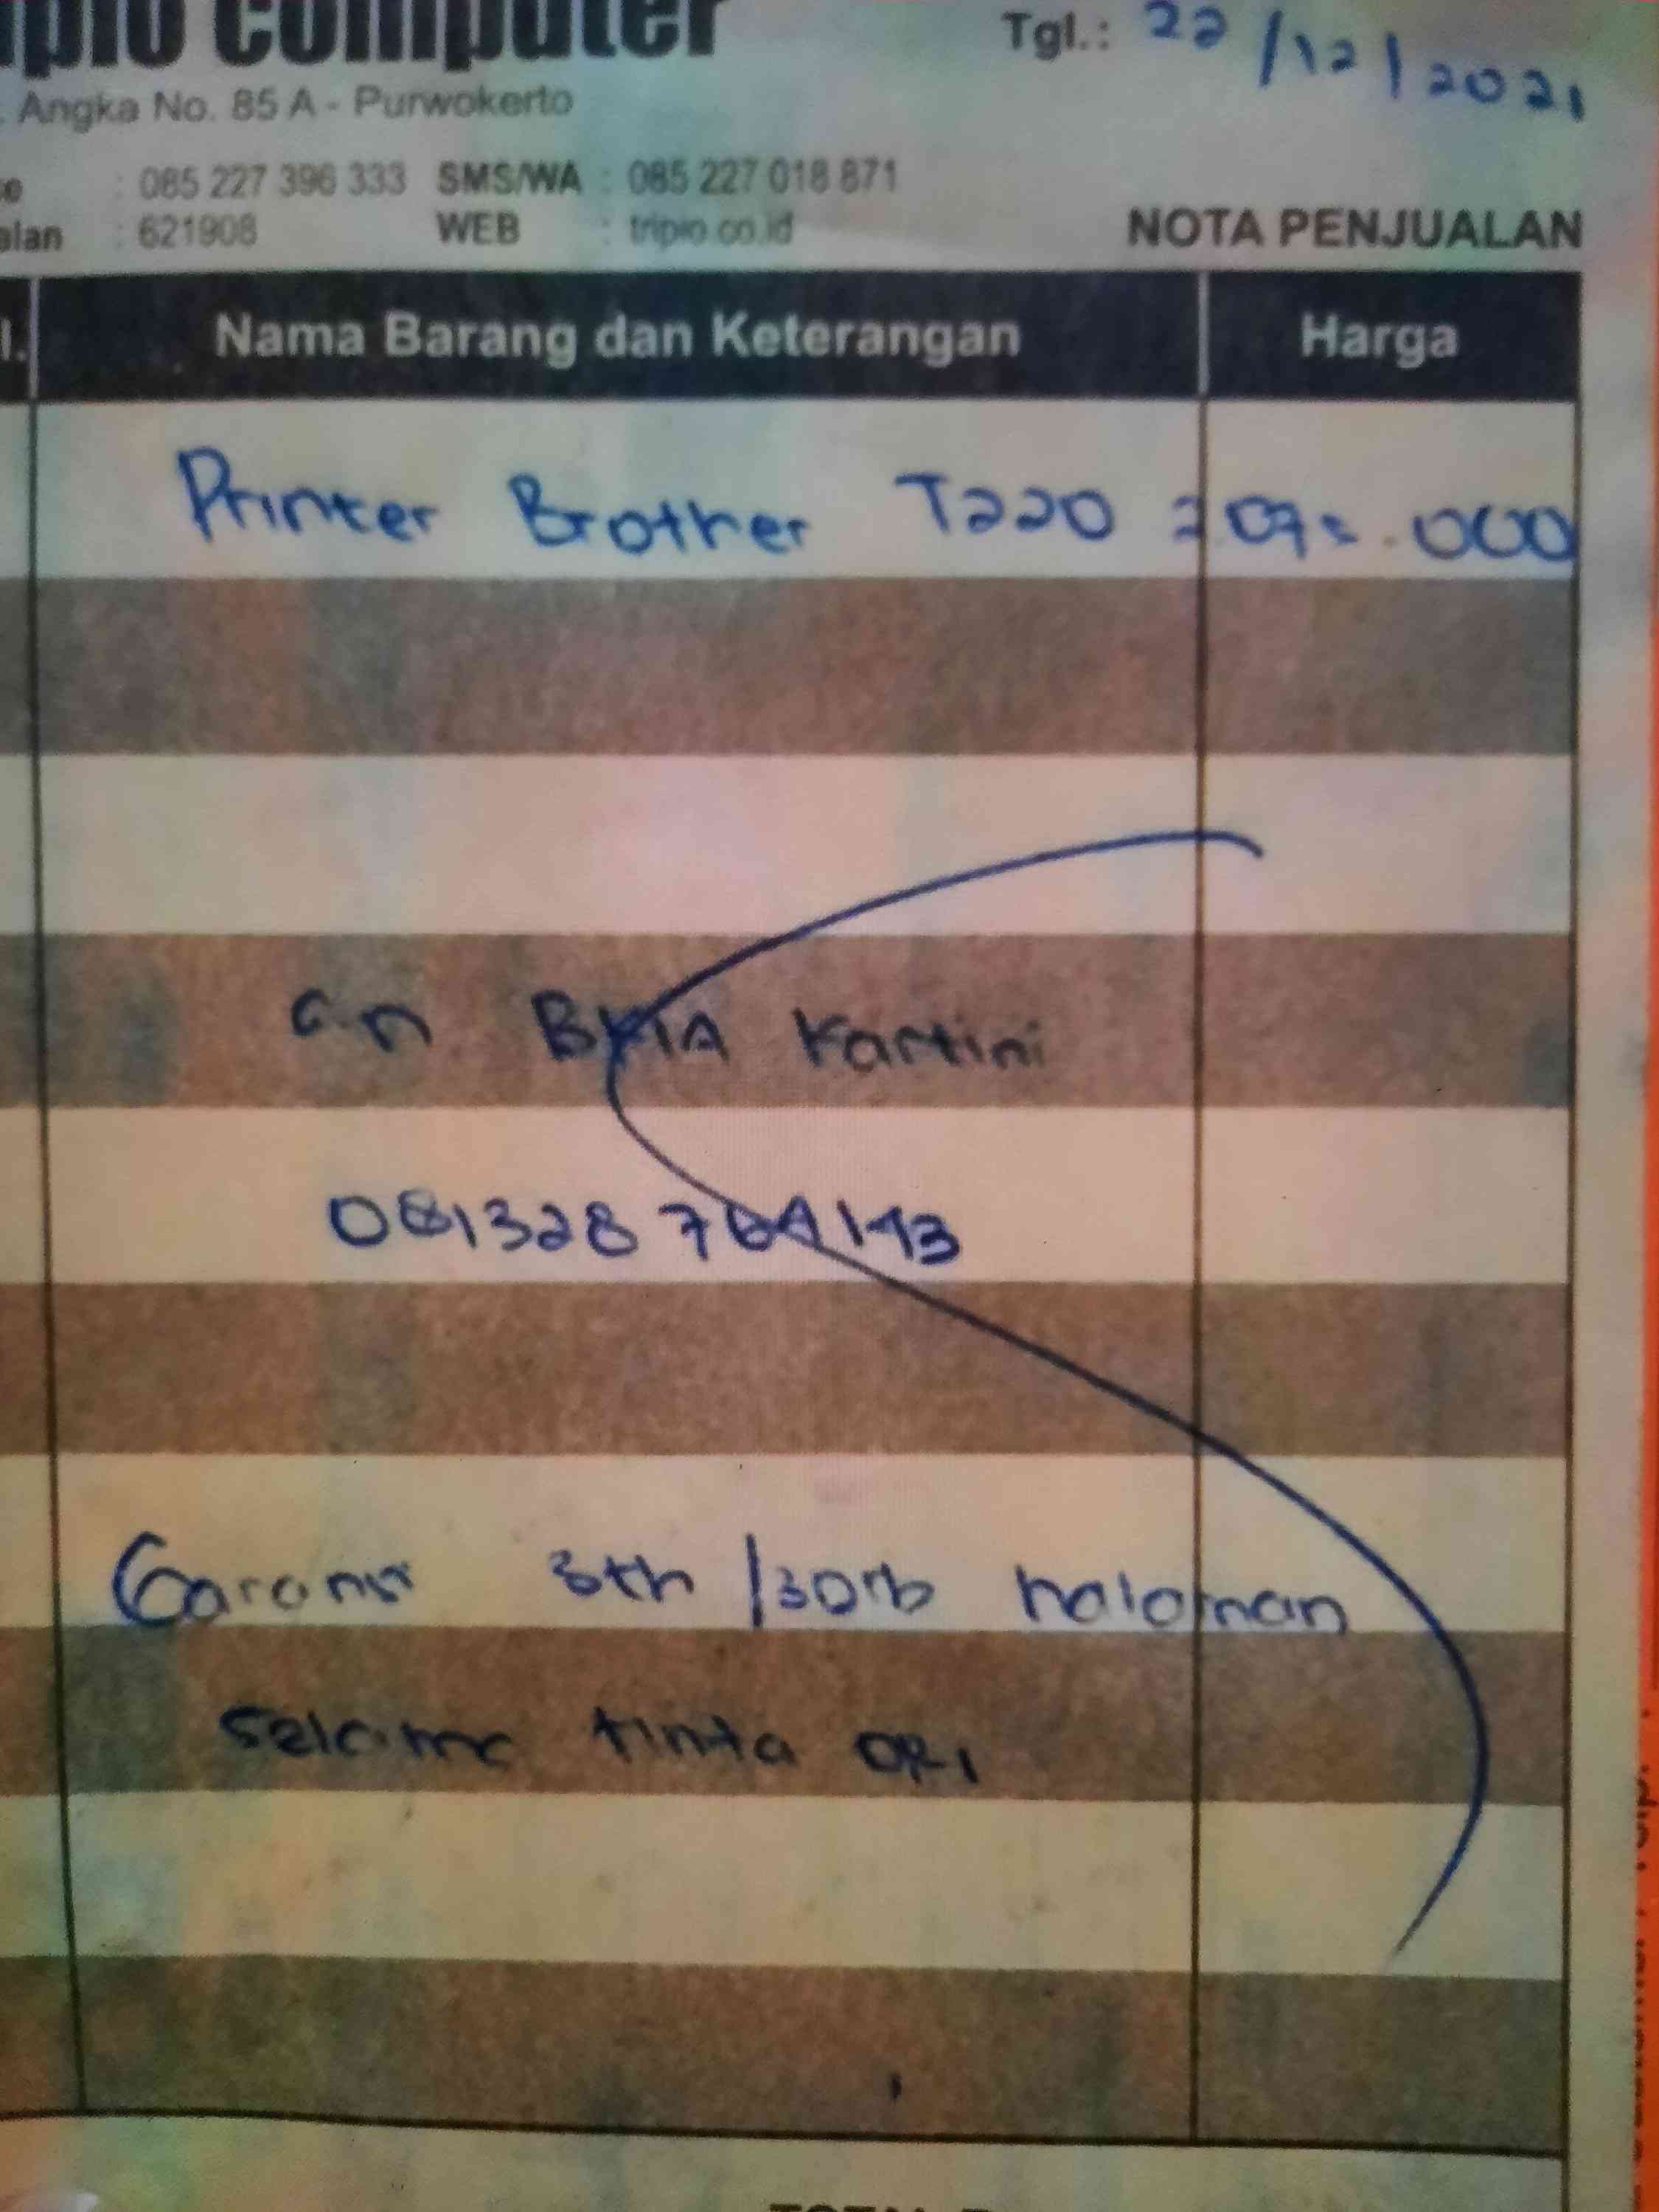 computer
Tgl.: 22/12/2021
Angka No. 85 A - Purwokerto
: 085 227 396 333 SMS/WA : 085 227 018 871
: 621908 WEB : tripio.co.id
NOTA PENJUALAN
Nama Barang dan Keterangan Harga
Printer Brother T220 2.095.000
a.n BKIA Kartini
Garansi 3th /30rb halaman
selama tinta ORI